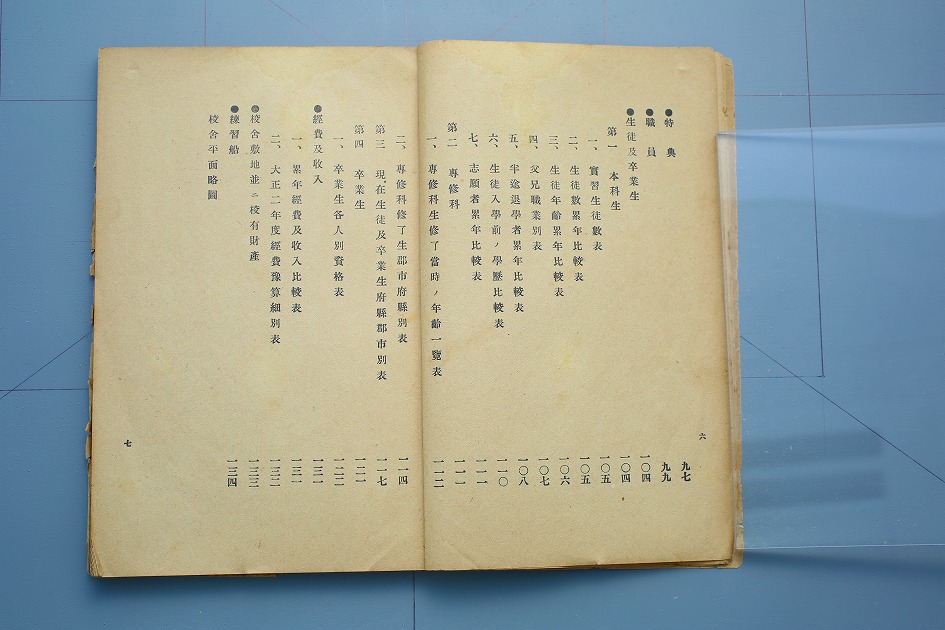 六
●特典 九七
●職員 九九
●生徒及卒業生 一〇四
第一 本科生 一〇四
一、實習生徒數表 一〇五
二、生徒數累年比較表 一〇五
三、生徒年齡累年比較表 一〇六
四、父兄職業別表 一〇七
五、半途退學者累年比較表 一〇八
六、生徒入學前ノ學歷比較表 一一〇
七、志願者累年比較表 一一一
第二 專修科 一一一
一、專修科生修了當時ノ年齡一覽表 一一二
二、專修科修了生郡市府縣別表 一一四
第三 現在生徒及卒業生府縣郡市別表 一一七
第四 卒業生 一二一
一、卒業生各人別資格表 一二二
●經費及收入 一三一
一、累年經費及收入比較表 一三一
二、大正二年度經費豫算細別表 一三二
●校舍敷地並ニ校有財產 一三三
●練習船 一三四
校舍平面略圖
七